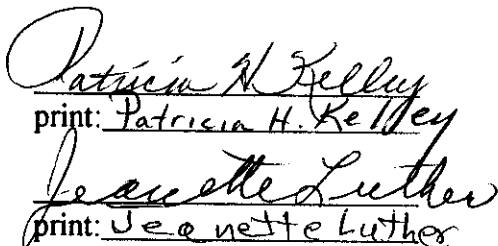 Patricia H. Kelley
print: Patricia H. Kelley
Jeanette Luther
print: Jeanette Luther